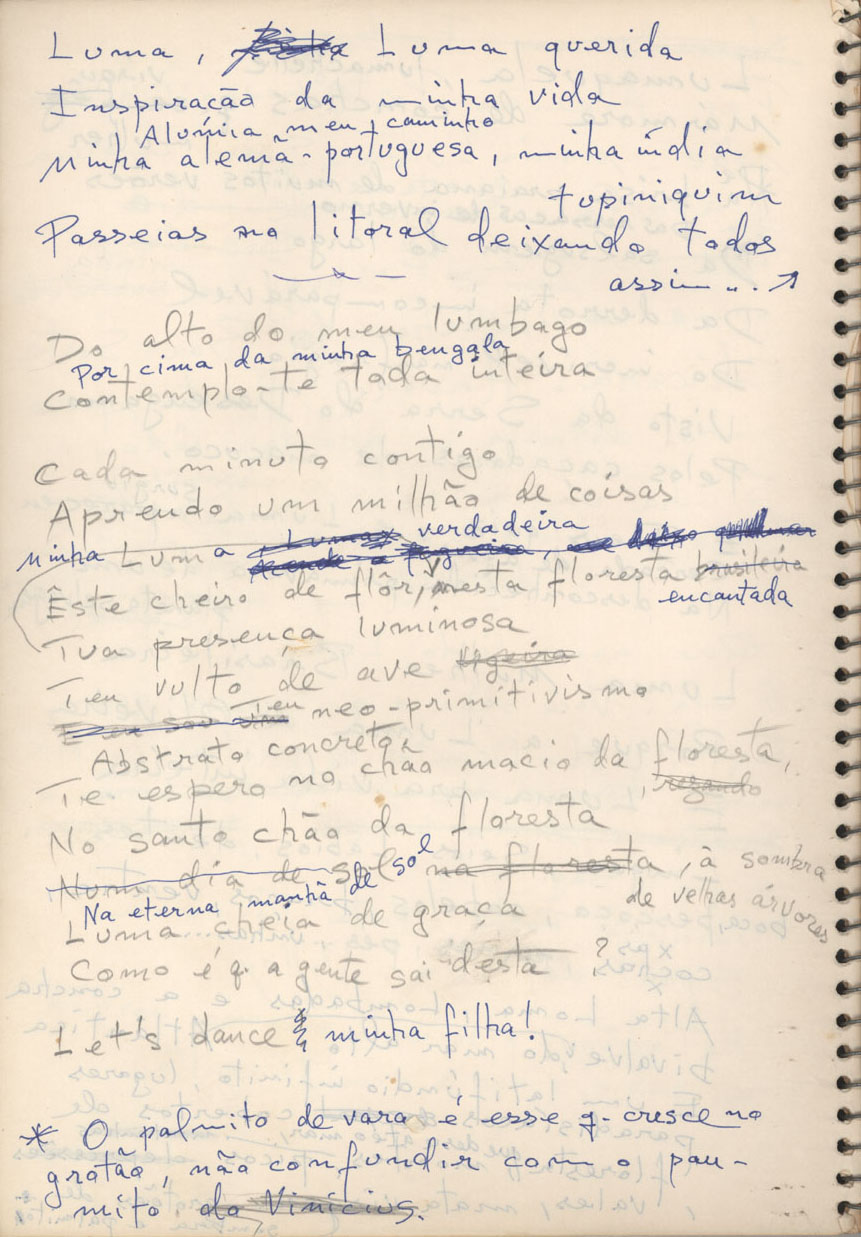 Luma, Luma querida
Inspiração da minha vida
Alumia meu caminho
Minha alemã-portuguesa, minha índia
tupiniquim
Passeias no litoral deixando todos
assim...
Do alto do meu lumbago
Por cima da minha bengala
Contemplo-te toda inteira
Cada minuto contigo
Aprendo um milhão de coisas
Minha Luma verdadeira
Êste cheiro de flôr, nesta floresta brasileira
encantada
Tua presença luminosa
Teu vulto de ave ligeira
Teu neo-primitivismo
Abstrato concreto
Te espero no chão macio da floresta,
, rezando
No santo chão da floresta
Num dia de sol na floresta, à sombra
de velhas árvores
Na eterna manhã de sol
Luma cheia de graça
Como é q. a gente sai desta ?
Let's dance minha filha!
* O palmito de vara é esse q. cresce no
grotão, não confundir com o pau-
mito do Vinícius.